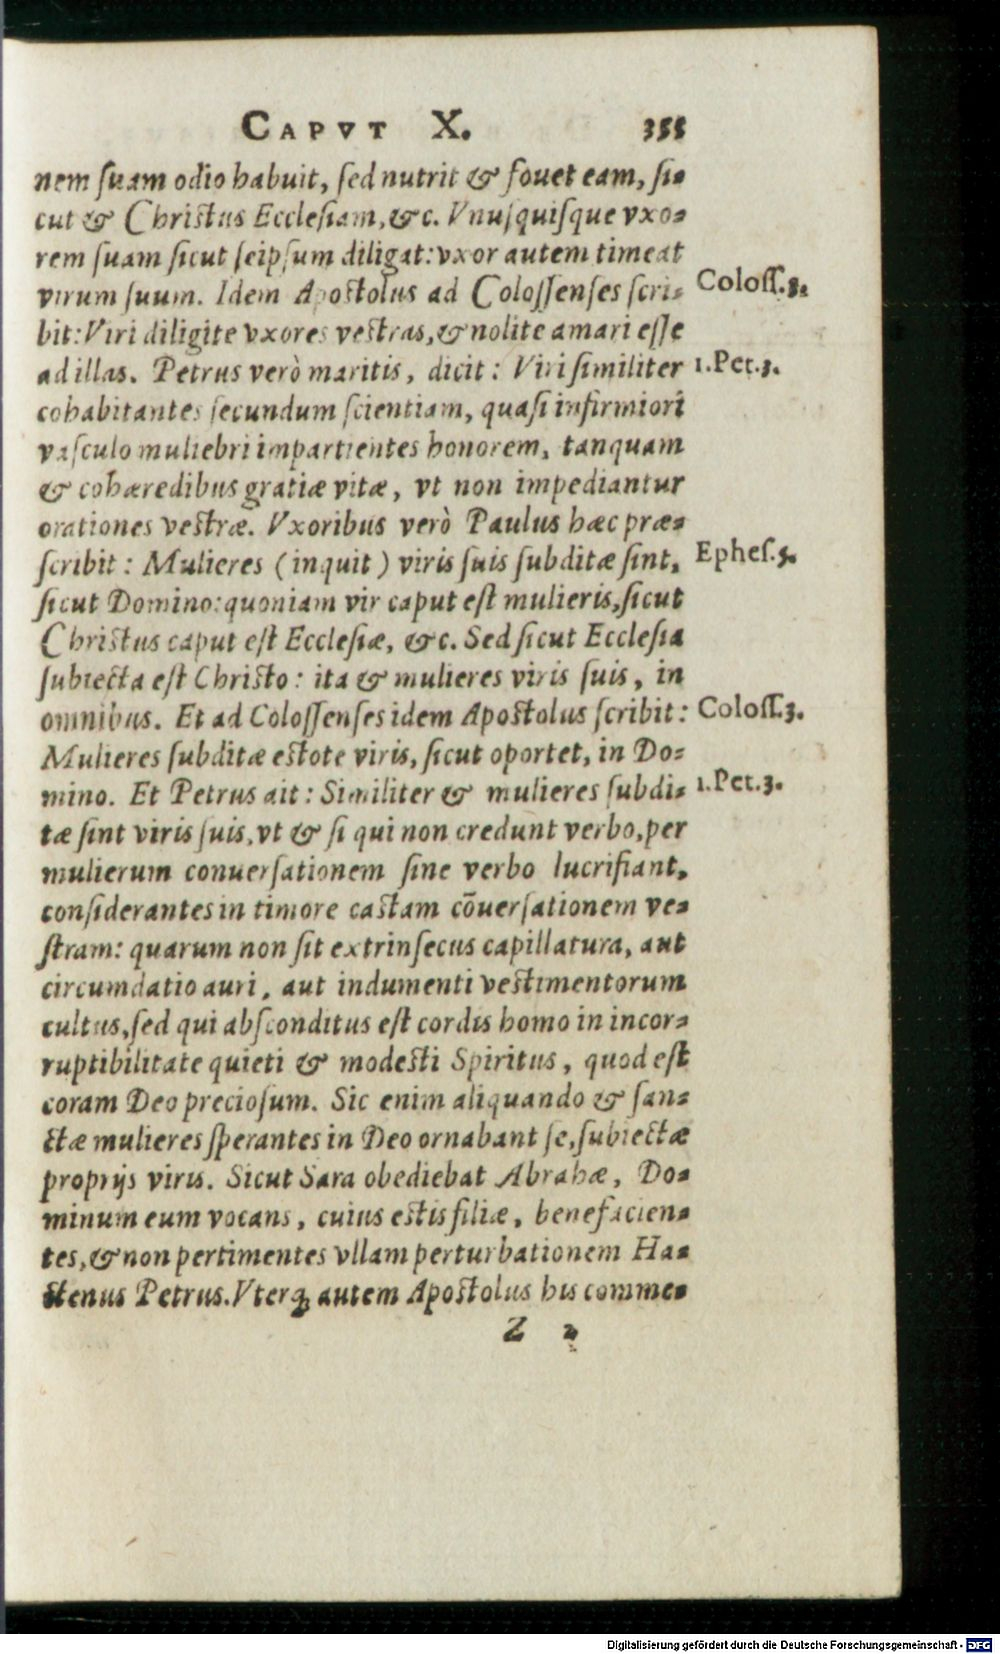 CAPVT X. 355
nem ſuam odio habuit, ſed nutrit & fouet eam, ſi-
cut & Chriſtus Eccleſiam, &c. Vnuſquiſque vxo-
rem ſuam ſicut ſeipſum diligat: vxor autem timeat
virum ſuum. Idem Apoſtolus ad Coloſſenſes ſcri- Coloſſ. 3.
bit: Viri diligite vxores veſtras, & nolite amari eſſe
ad illas. Petrus verò maritis, dicit: Viri ſimiliter 1. Pet. 3.
cohabitantes ſecundum ſcientiam, quaſi infirmiori
vaſculo muliebri impartientes honorem, tanquam
& cohæredibus gratiæ vitæ, vt non impediantur
orationes veſtræ. Vxoribus verò Paulus hæc præ-
ſcribit: Mulieres (inquit) viris ſuis ſubditæ ſint, Epheſ. 5.
ſicut Domino: quoniam vir caput eſt mulieris, ſicut
Chriſtus caput eſt Eccleſiæ, &c. Sed ſicut Eccleſia
ſubiecta eſt Chriſto: ita & mulieres viris ſuis, in
omnibus. Et ad Coloſſenſes idem Apoſtolus ſcribit: Coloſſ. 3.
Mulieres ſubditæ eſtote viris, ſicut oportet, in Do-
mino. Et Petrus ait: Similiter & mulieres ſubdi- 1. Pet. 3.
tæ ſint viris ſuis, vt & ſi qui non credunt verbo, per
mulierum conuerſationem ſine verbo lucrifiant,
conſiderantes in timore caſtam cōuerſationem ve-
ſtram: quarum non ſit extrinſecus capillatura, aut
circumdatio auri, aut indumenti veſtimentorum
cultus, ſed qui abſconditus eſt cordis homo in incor-
ruptibilitate quieti & modeſti Spiritus, quod eſt
coram Deo precioſum. Sic enim aliquando & ſan-
ctæ mulieres ſperantes in Deo ornabant ſe, ſubiectæ
proprijs viris. Sicut Sara obediebat Abrahæ, Do-
minum eum vocans, cuius eſtis filiæ, benefacien-
tes, & non pertimentes vllam perturbationem Ha-
ctenus Petrus. Vterq; autem Apoſtolus his comme-
Z 2
Digitalisierung gefördert durch die Deutsche Forschungsgemeinschaft - DFG